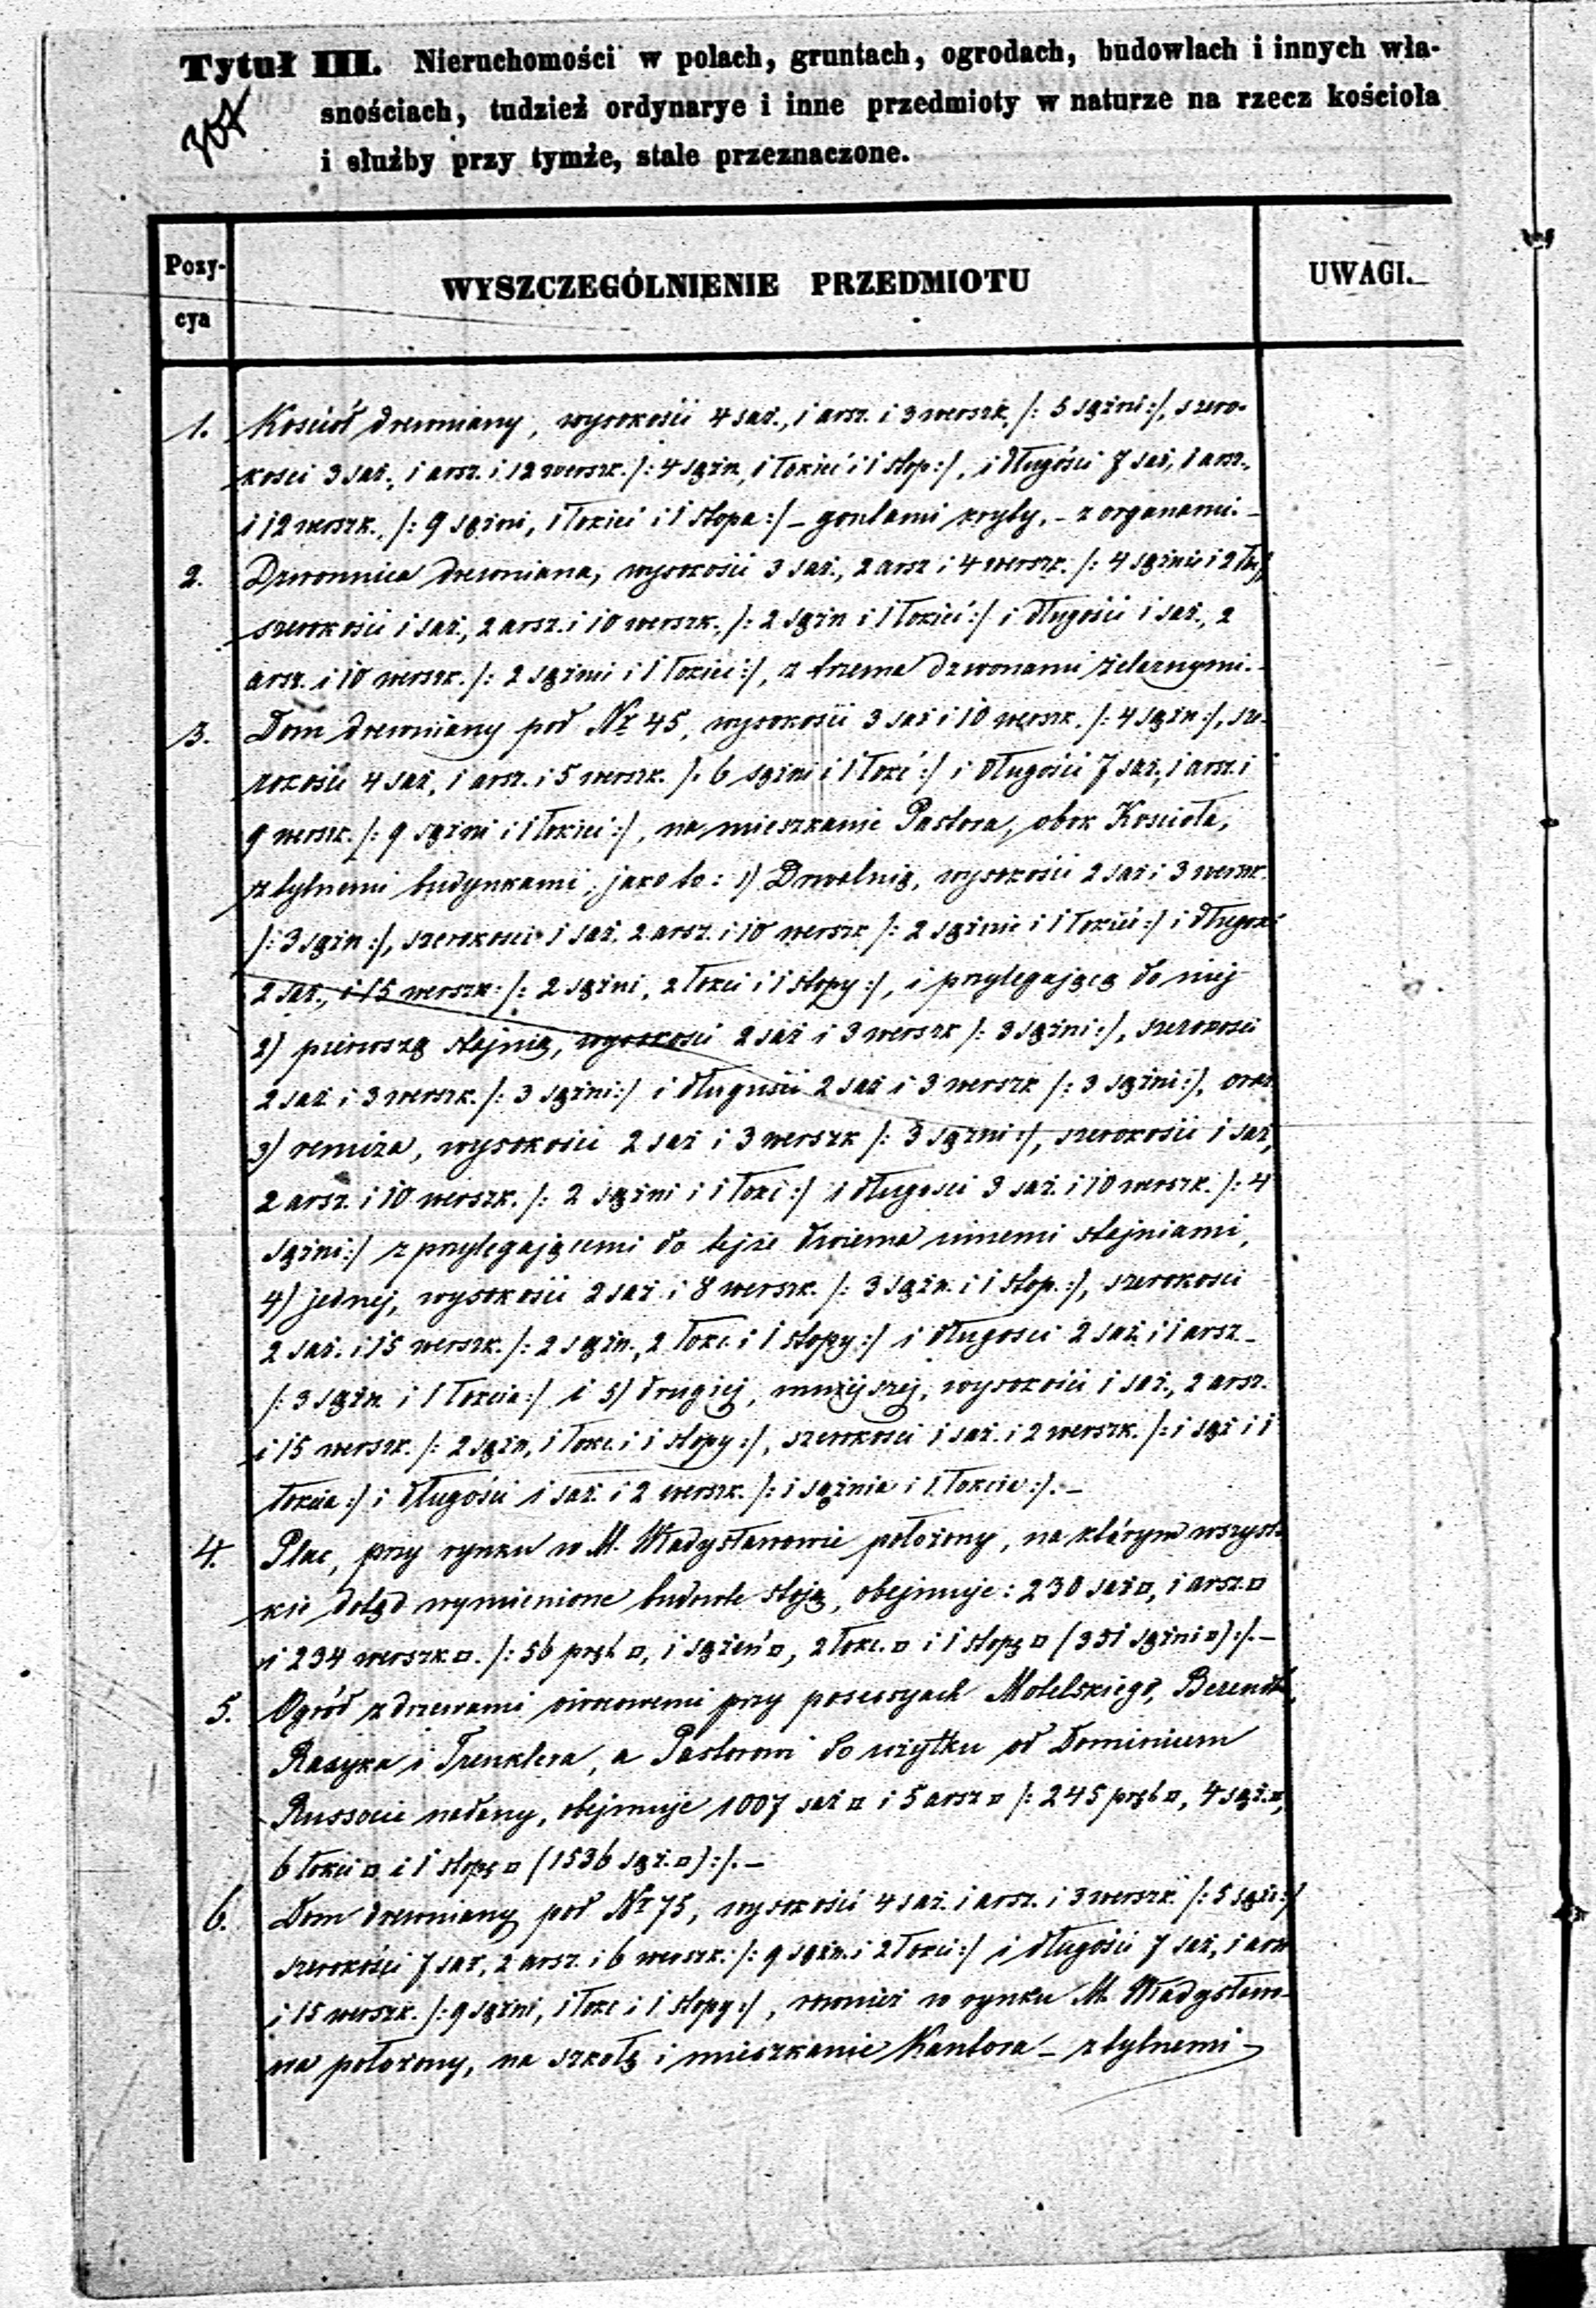 Tytuł III. Nieruchomości w polach, gruntach, ogrodach, budowlach i innych wła-
snościach, tudzież ordynarye i inne przedmioty w naturze na rzecz kościoła
i służby przy tymże, stale przeznaczone.
Pozy-
cya
WYSZCZEGÓLNIENIE PRZEDMIOTU
UWAGI.
1. Kościół drewniany, wysokości 4 saż., 1 arsz. i 3 werszk. /: 5 sążni :/, szero-
kości 3 saż., 1 arsz. i 12 werszk. /: 4 sążn., 1 łokieć i 1 stop. :/, i długości 7 saż., 1 arsz.,
i 12 werszk., /: 9 sążni, 1 łokieć i 1 stopa :/ – gontami kryty, – z organami. –
2. Dzwonnica drewniana, wysokości 3 saż., 2 arsz i 4 werszk. /: 4 sążnie i 2
szerokości 1 saż., 2 arsz. i 10 werszk., /: 2 sążn i 1 łokieć :/ i długości 1 saż., 2
arsz. i 10 werszk. /: 2 sążni i 1 łokieć :/, z trzema dzwonami żelaznymi. –
3. Dom drewniany pod Nr 45, wysokości 3 saż i 10 werszk. /: 4 sążn :/, sze-
rokości 4 saż, 1 arsz. i 5 werszk. /: 6 sążni i 1 łokć :/ i długości 7 saż., 1 arsz. i
9 werszk. /: 9 sążni i 1 łokieć :/, na mieszkanie Pastora, obok Kościoła,
z tylnemi budynkami, jako to: 1) Drwalnią, wysokości 2 saż i 3 werszk.
/: 3 sążn :/, szerokości 1 saż. 2 arsz. i 10 werszk /: 2 sążnie i 1 łokieć :/ i długości
2 saż., i 15 werszk. /: 2 sążni, 2 łokci i 1 stopy :/, i przylegającą do niej
2) pierwszą stajnią, wysokości 2 saż i 3 werszk /: 3 sążni :/, szerokości
2 saż i 3 werszk. /: 3 sążni :/ i długości 2 saż i 3 werszk /: 3 sążni :/, oraz
3) remiza, wysokości 2 saż i 3 werszk /: 3 sążni :/, szerokości 1 saż,
2 arsz. i 10 werszk. /: 2 sążni i 1 łokć :/ i długości 3 saż. i 10 werszk. /: 4
sążni :/ z przylegającemi do tejże dwiema innemi stajniami,
4) jednej, wysokości 2 saż i 8 werszk. /: 3 sążn. i 1 stop. :/, szerokości
2 saż. i 15 werszk. /: 2 sążn., 2 łokc. i 1 stopy :/ i długości 2 saż i 1 arsz –
/: 3 sążn i 1 łokcia :/ i 5) drugiej, mniejszej, wysokości 1 saż., 2 arsz.
i 15 werszk. /: 2 sążn, 1 łokc. i 1 stopy :/, szerokości 1 saż. i 2 werszk. /: 1 sąż i 1
łokcia :/ i długości 1 saż. i 2 werszk. /: 1 sążnia i 1 łokcia :/. –
4. Plac, przy rynku w M. Władysławowie położony, na którym wszyst-
kie dotąd wymienione budowle stoją, obejmuje: 230 saż □, 1 arsz □
i 234 werszk □. /: 56 pręt □, 1 sążeń □, 2 łokc. □ i 1 stopę □ (351 sążni □) :/. –
5. Ogród z drzewami owocowemi przy posessyach Motelskiego,
i Trenklera, a Pastorowi do użytku od Dominium
Russocie nadany, obejmuje 1007 saż □ i 5 arsz □ /: 245 pręt □, 4 sąż. □,
6 łokci □ i 1 stopę □ (1536 sąż. □) :/. –
6. Dom drewniany pod Nr 75, wysokości 4 saż. 1 arsz. i 3 werszk. /: 5 sąż :/
szerokości 7 saż, 2 arsz. i 6 werszk. /: 9 sążn. i 2 łokci :/ i długości 7 saż, 1 arsz
i 15 werszk. /: 9 sążni, 1 łokc i 1 stopy :/, również w rynku M. Władysławo-
wa położony, na szkołę i mieszkanie Kantora – z tylnemi –